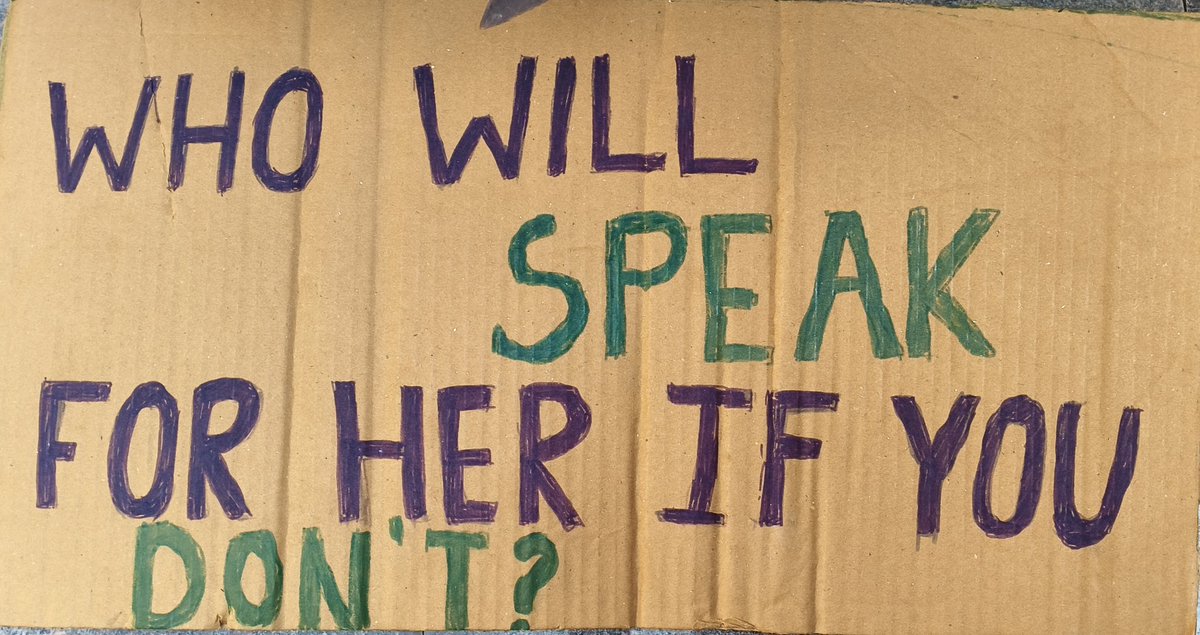 WHO WILL
SPEAK
FOR HER IF YOU
DON'T?